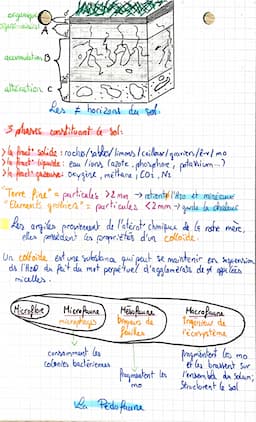 organique
A
accumulation B
altération C
Les ≠ horizons du sol
3 phases constituant le sol:
> la fract° solide: roches/sables/limons/cailloux/graviers/êv/mo
> la fract° liquide: eau/ions (azote, phosphore, potassium...)
> la fract° gazeuse: oxygène, méthane, CO2, N2
"Terre fine" = particules >2mm → retient l'H2O et minéraux
"Elements grossiers" = particules <2mm → garde la chaleur
Les argiles proviennent de l'altérat° chimique de la roche mère,
elles possèdent les propriétés d'un colloïde.
Un colloïde est une substance qui peut se maintenir en suspension
ds l'H2O du fait du mvt perpétuel d'agglomérats de appelées
micelles.
Microflore Microfaune Mésofaune Macrofaune
microphages Broyeurs de Ingénieur de
feuilles l'écosystème
consomment les
colonies bactériennes
fragmentent les
mo
fragmentent les mo
et les brassent sur
l'ensemble du solum;
Structurent le sol
La Pédofaune